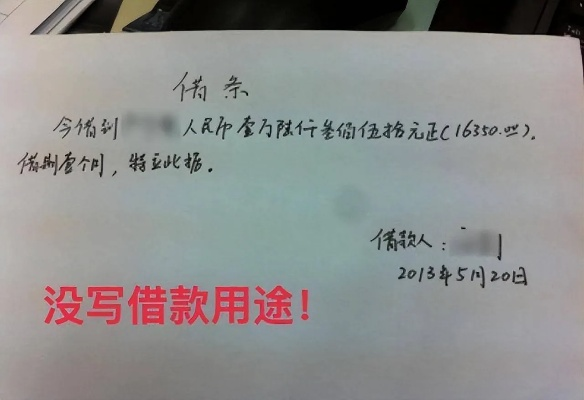 借条
今借到 人民币壹万陆仟叁佰伍拾元正(16350.00).
借期壹个月，特立此据。
借款人：
2013年5月20日
没写借款用途！